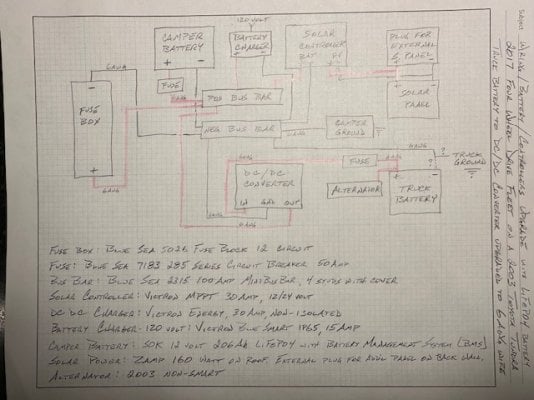 Subject: Wiring/Battery/Controllers Upgrade with LiFePO4 Battery
2017 Four Wheel Drive Fleet on a 2003 Toyota Tundra
Truck Battery to DC/DC Converter upgraded to 6 AWG wire
120 VOLT
CAMPER
BATTERY
+ -
BATTERY
CHARGER
+ -
SOLAR
CONTROLLER
BAT PV
PLUG FOR
EXTERNAL
PANEL
+ -
SOLAR
PANEL
6 AWG
FUSE
POS BUS BAR
NEG BUS BAR
-
FUSE
BOX
+
6 AWG
CAMPER
GROUND
6 AWG
TRUCK
GROUND
?
?
FUSE
+ -
TRUCK
BATTERY
ALTERNATOR
DC/DC
CONVERTER
IN GND OUT
6 AWG
6 AWG
FUSE BOX: BLUE SEA 5026 FUSE BLOCK 12 CIRCUIT
FUSE: BLUE SEA 7183 285 SERIES CIRCUIT BREAKER 50 AMP
BUS BAR: BLUE SEA 2315 100 AMP MINIBUSBAR, 4 STUDS WITH COVER
SOLAR CONTROLLER: VICTRON MPPT 30 AMP, 12/24 VOLT
DC DC CHARGER: VICTRON ENERGY, 30 AMP, NON-ISOLATED
BATTERY CHARGER-120 VOLT: VICTRON BLUE SMART IP65, 15 AMP
CAMPER BATTERY: SOK 12 VOLT 206 Ah LiFePO4 WITH BATTERY MANAGEMENT SYSTEM (BMS)
SOLAR POWER: ZAMP 160 WATT ON ROOF, EXTERNAL PLUG FOR ADD'L PANEL ON BACK WALL.
ALTERNATOR: 2003 NON-SMART